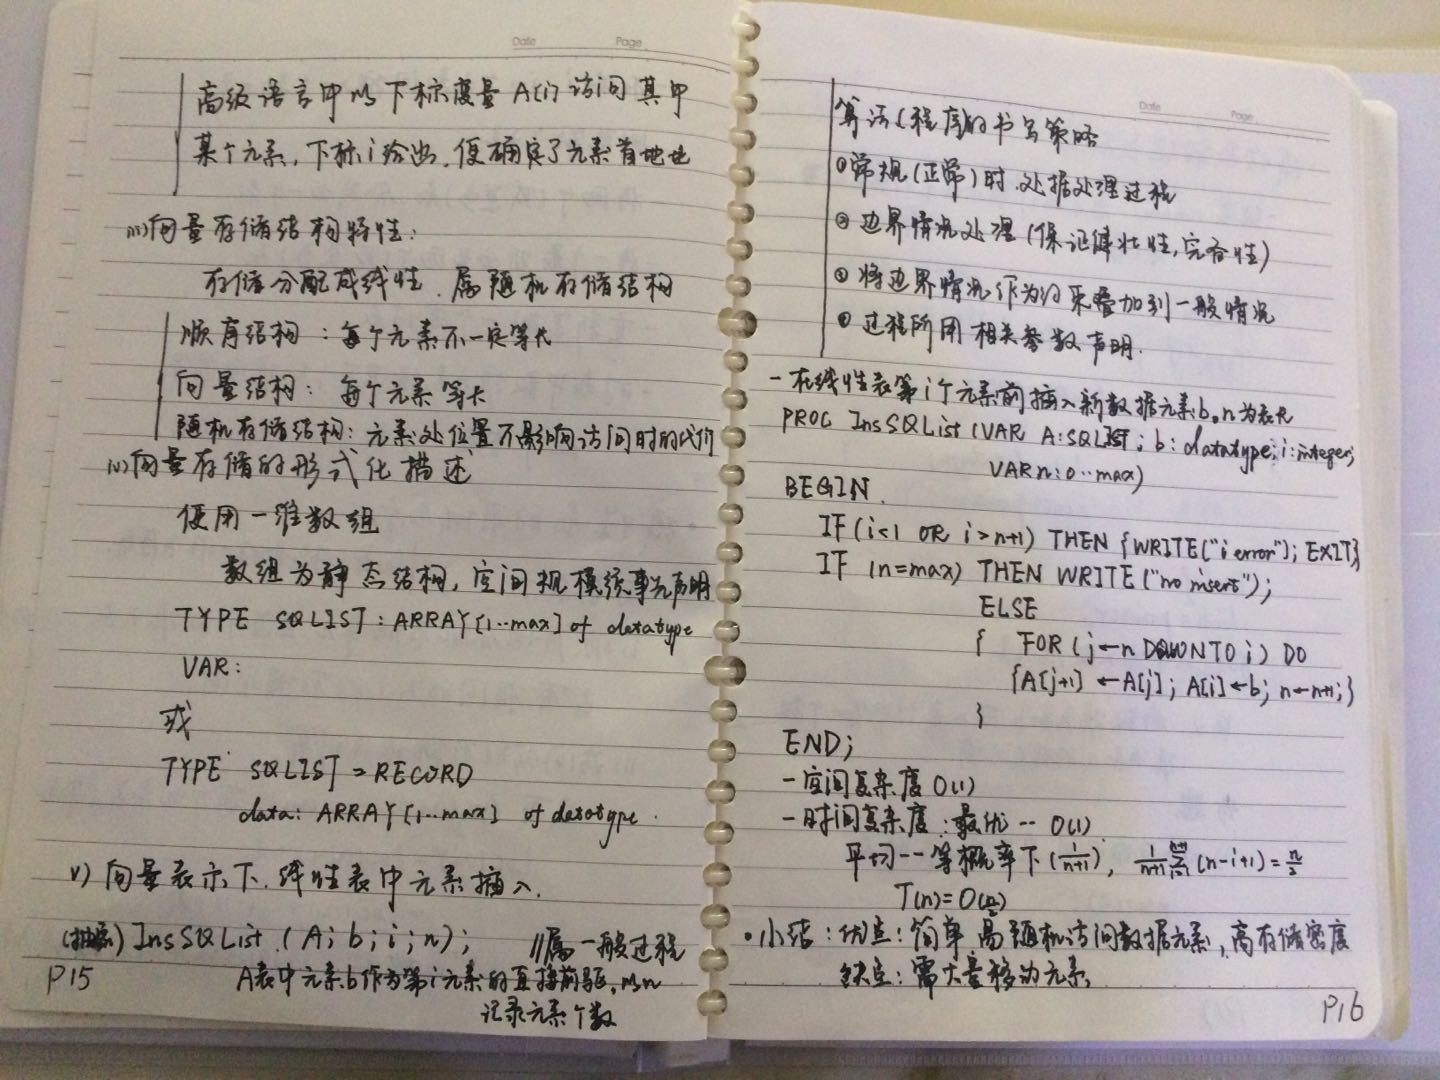 Date Page
高级语言中以下标变量A(i)访问其中
某个元素,下标i给出,便确定了元素首地址
iii)向量存储结构特性:
存储分配成线性,属随机存储结构
顺序结构:每个元素不一定等长
向量结构:每个元素等长
随机存储结构:元素处位置不影响访问时的代价
iv)向量存储的形式化描述
使用一维数组
数组为静态结构,空间规模须事先声明
TYPE SQLIST:ARRAY[1..max] of datatype
VAR:
或
TYPE SQLIST=RECORD
data: ARRAY[1...max] of datatype.
v)向量表示下,线性表中元素插入.
InsSQList (A; b; i; n); //属一般过程
A表中元素b作为第i元素的直接前驱,以n
记录元素个数
P15
Date Page
算法(程序)的书写策略
①常规(正常)时,处据处理过程
②边界情况处理(保证健壮性,完备性)
③将边界情况作为约束叠加到一般情况
④过程所用相关参数声明.
-在线性表第i个元素前插入新数据元素b。n为表长
PROC InsSQList(VAR A:SQLIST; b: datatype; i:integer;
VAR n:0..max)
BEGIN
IF(i<1 OR i>n+1) THEN {WRITE("i error"); EXIT}
IF (n=max) THEN WRITE("no insert");
ELSE
{ FOR (j←n DOWNTO i) DO
{A[j+1] ←A[j]; A[i]←b; n←n+1;}
}
END;
-空间复杂度O(1)
-时间复杂度:最优--O(1)
平均--等概率下(1/(n+1)), 1/(n+1) Σ(n-i+1)=n/2
T(n)=O(n/2)
•小结:优点:简单,易随机访问数据元素,高存储密度
缺点:需大量移动元素
P16